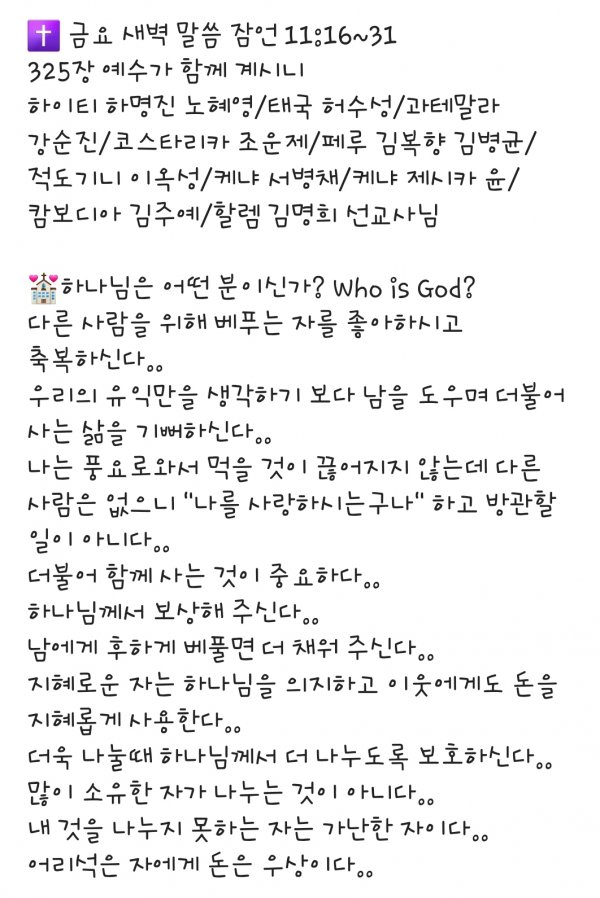 ✝️ 금요 새벽 말씀 잠언 11:16~31
325장 예수가 함께 계시니
하이티 하명진 노혜영/태국 허수성/과테말라
강순진/코스타리카 조운제/페루 김복향 김병균/
적도기니 이옥성/케냐 서병채/케냐 제시카 윤/
캄보디아 김주예/할렘 김명희 선교사님

💒하나님은 어떤 분이신가? Who is God?
다른 사람을 위해 베푸는 자를 좋아하시고
축복하신다。。
우리의 유익만을 생각하기 보다 남을 도우며 더불어
사는 삶을 기뻐하신다。。
나는 풍요로와서 먹을 것이 끊어지지 않는데 다른
사람은 없으니 "나를 사랑하시는구나" 하고 방관할
일이 아니다。。
더불어 함께 사는 것이 중요하다。。
하나님께서 보상해 주신다。。
남에게 후하게 베풀면 더 채워 주신다。。
지혜로운 자는 하나님을 의지하고 이웃에게도 돈을
지혜롭게 사용한다。。
더욱 나눌때 하나님께서 더 나누도록 보호하신다。。
많이 소유한 자가 나누는 것이 아니다。。
내 것을 나누지 못하는 자는 가난한 자이다。。
어리석은 자에게 돈은 우상이다。。